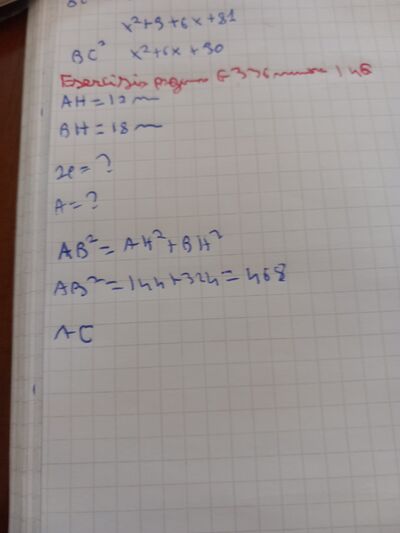 x²+9+6x+81
BC² x²+6x+90
Esercizio pagina G 376 numero 146
AH=12 m
BH=18 m
2p=?
A=?
AB²=AH²+BH²
AB²=144+324=468
AC